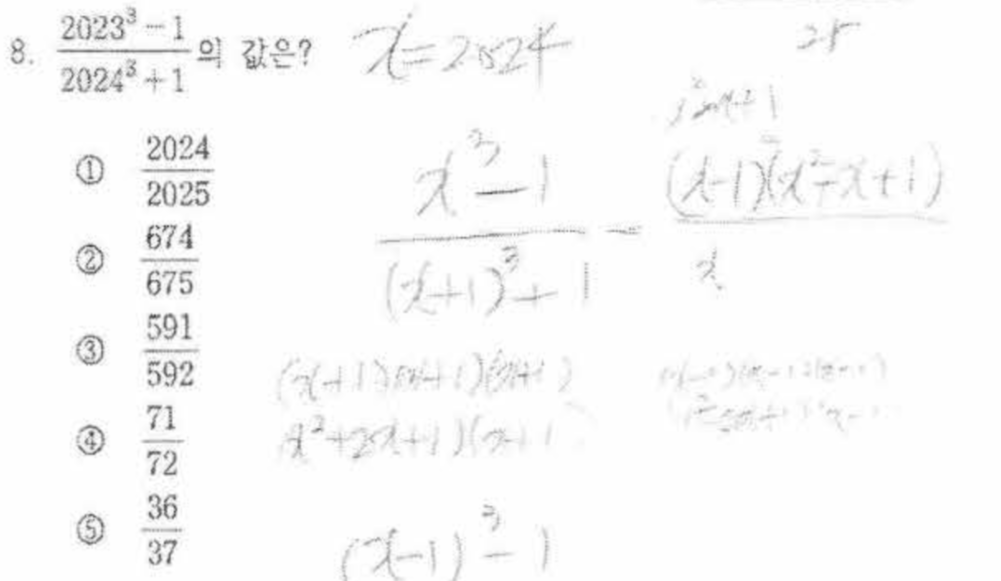 8. \frac{2023^3 - 1}{2024^3 + 1}의 값은?
① \frac{2024}{2025}
② \frac{674}{675}
③ \frac{591}{592}
④ \frac{71}{72}
⑤ \frac{36}{37}
x=2024
\frac{x^3 - 1}{(x+1)^3 + 1} = \frac{(x-1)(x^2+x+1)}{x}
x^2+2x+1)(x+1
(x-1)^3 - 1